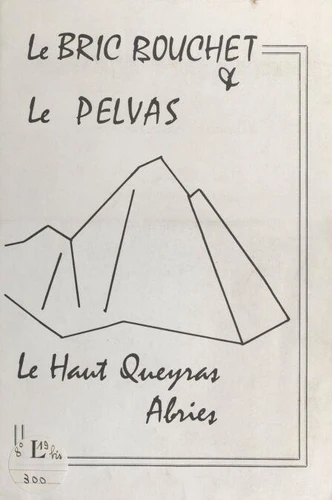 Le BRIC BOUCHET
&
Le PELVAS
Le Haut Queyras
Abries
8° L 19 bis
300